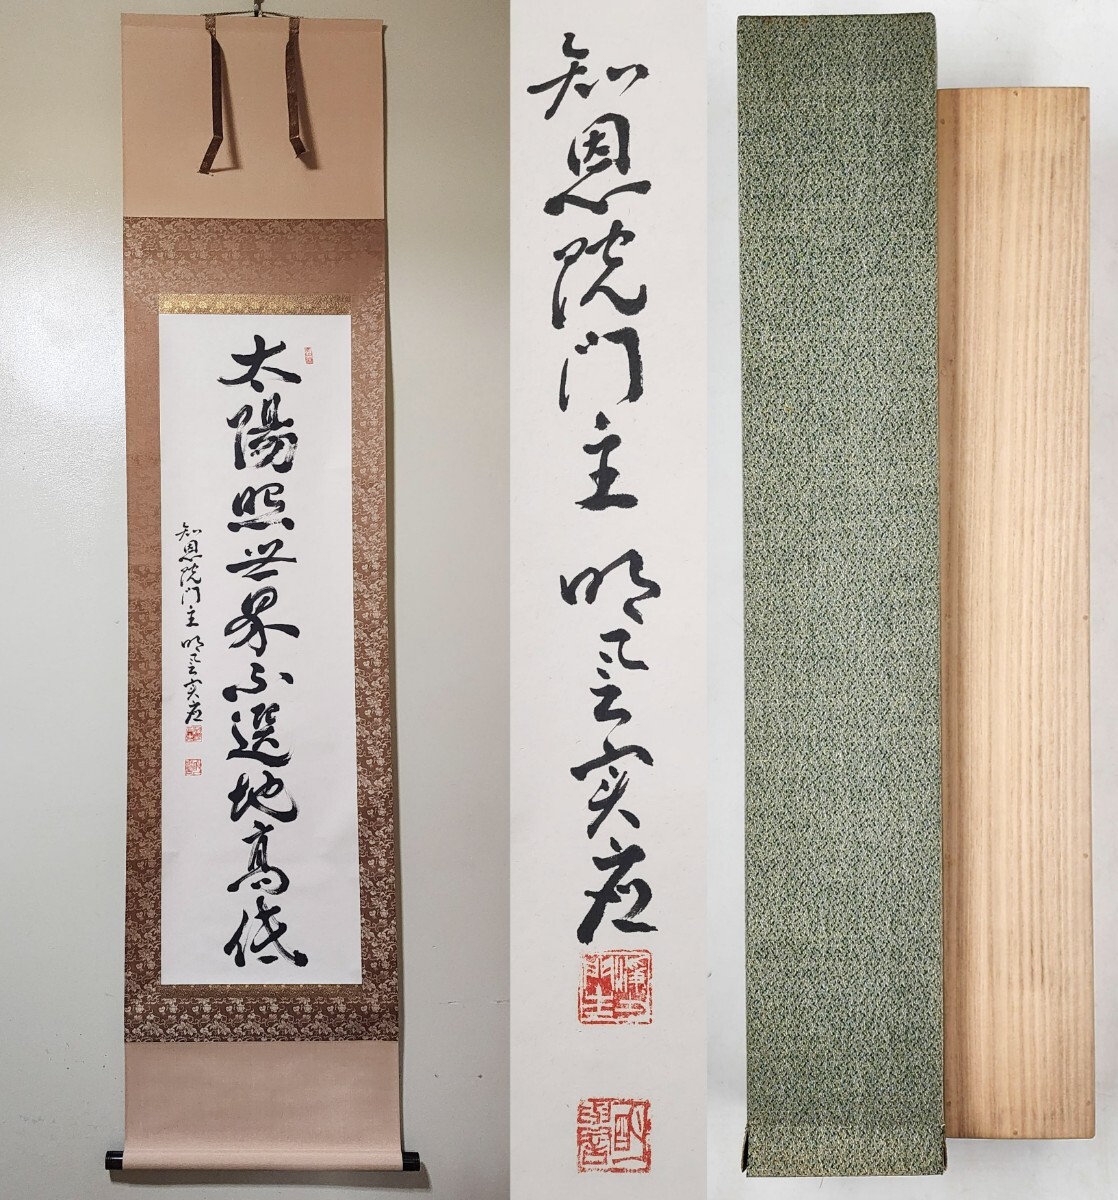 太陽照世界不選地高低
知恩院門主 明誉実応
知恩院門主 明誉実応